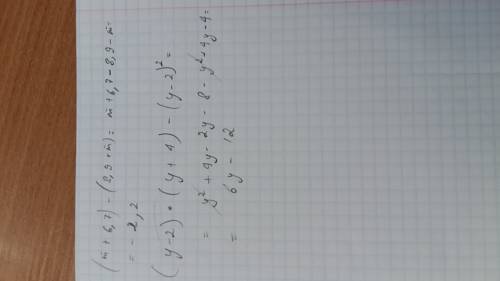 (m + 6,7) - (8,9 + m) = m + 6,7 - 8,9 - m =
= - 2,2
(y - 2) • (y + 4) - (y - 2)² =
= y² + 4y - 2y - 8 - y² + 4y - 4 =
= 6y - 12